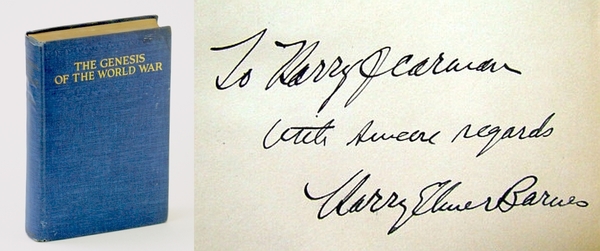 THE GENESIS
OF THE WORLD WAR
To Harry J Carman
With sincere regards
Harry Elmer Barnes